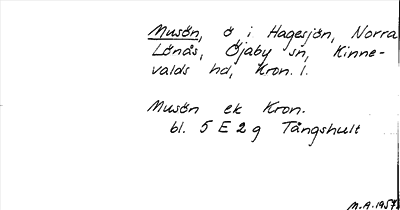 Musön, ö i Hagesjön, Norra
Lönås, Öjaby sn, Kinne-
valds hd, Kron. l.
Musön ek Kron.
bl. 5 E 2 g Tångshult
M.A. 1957